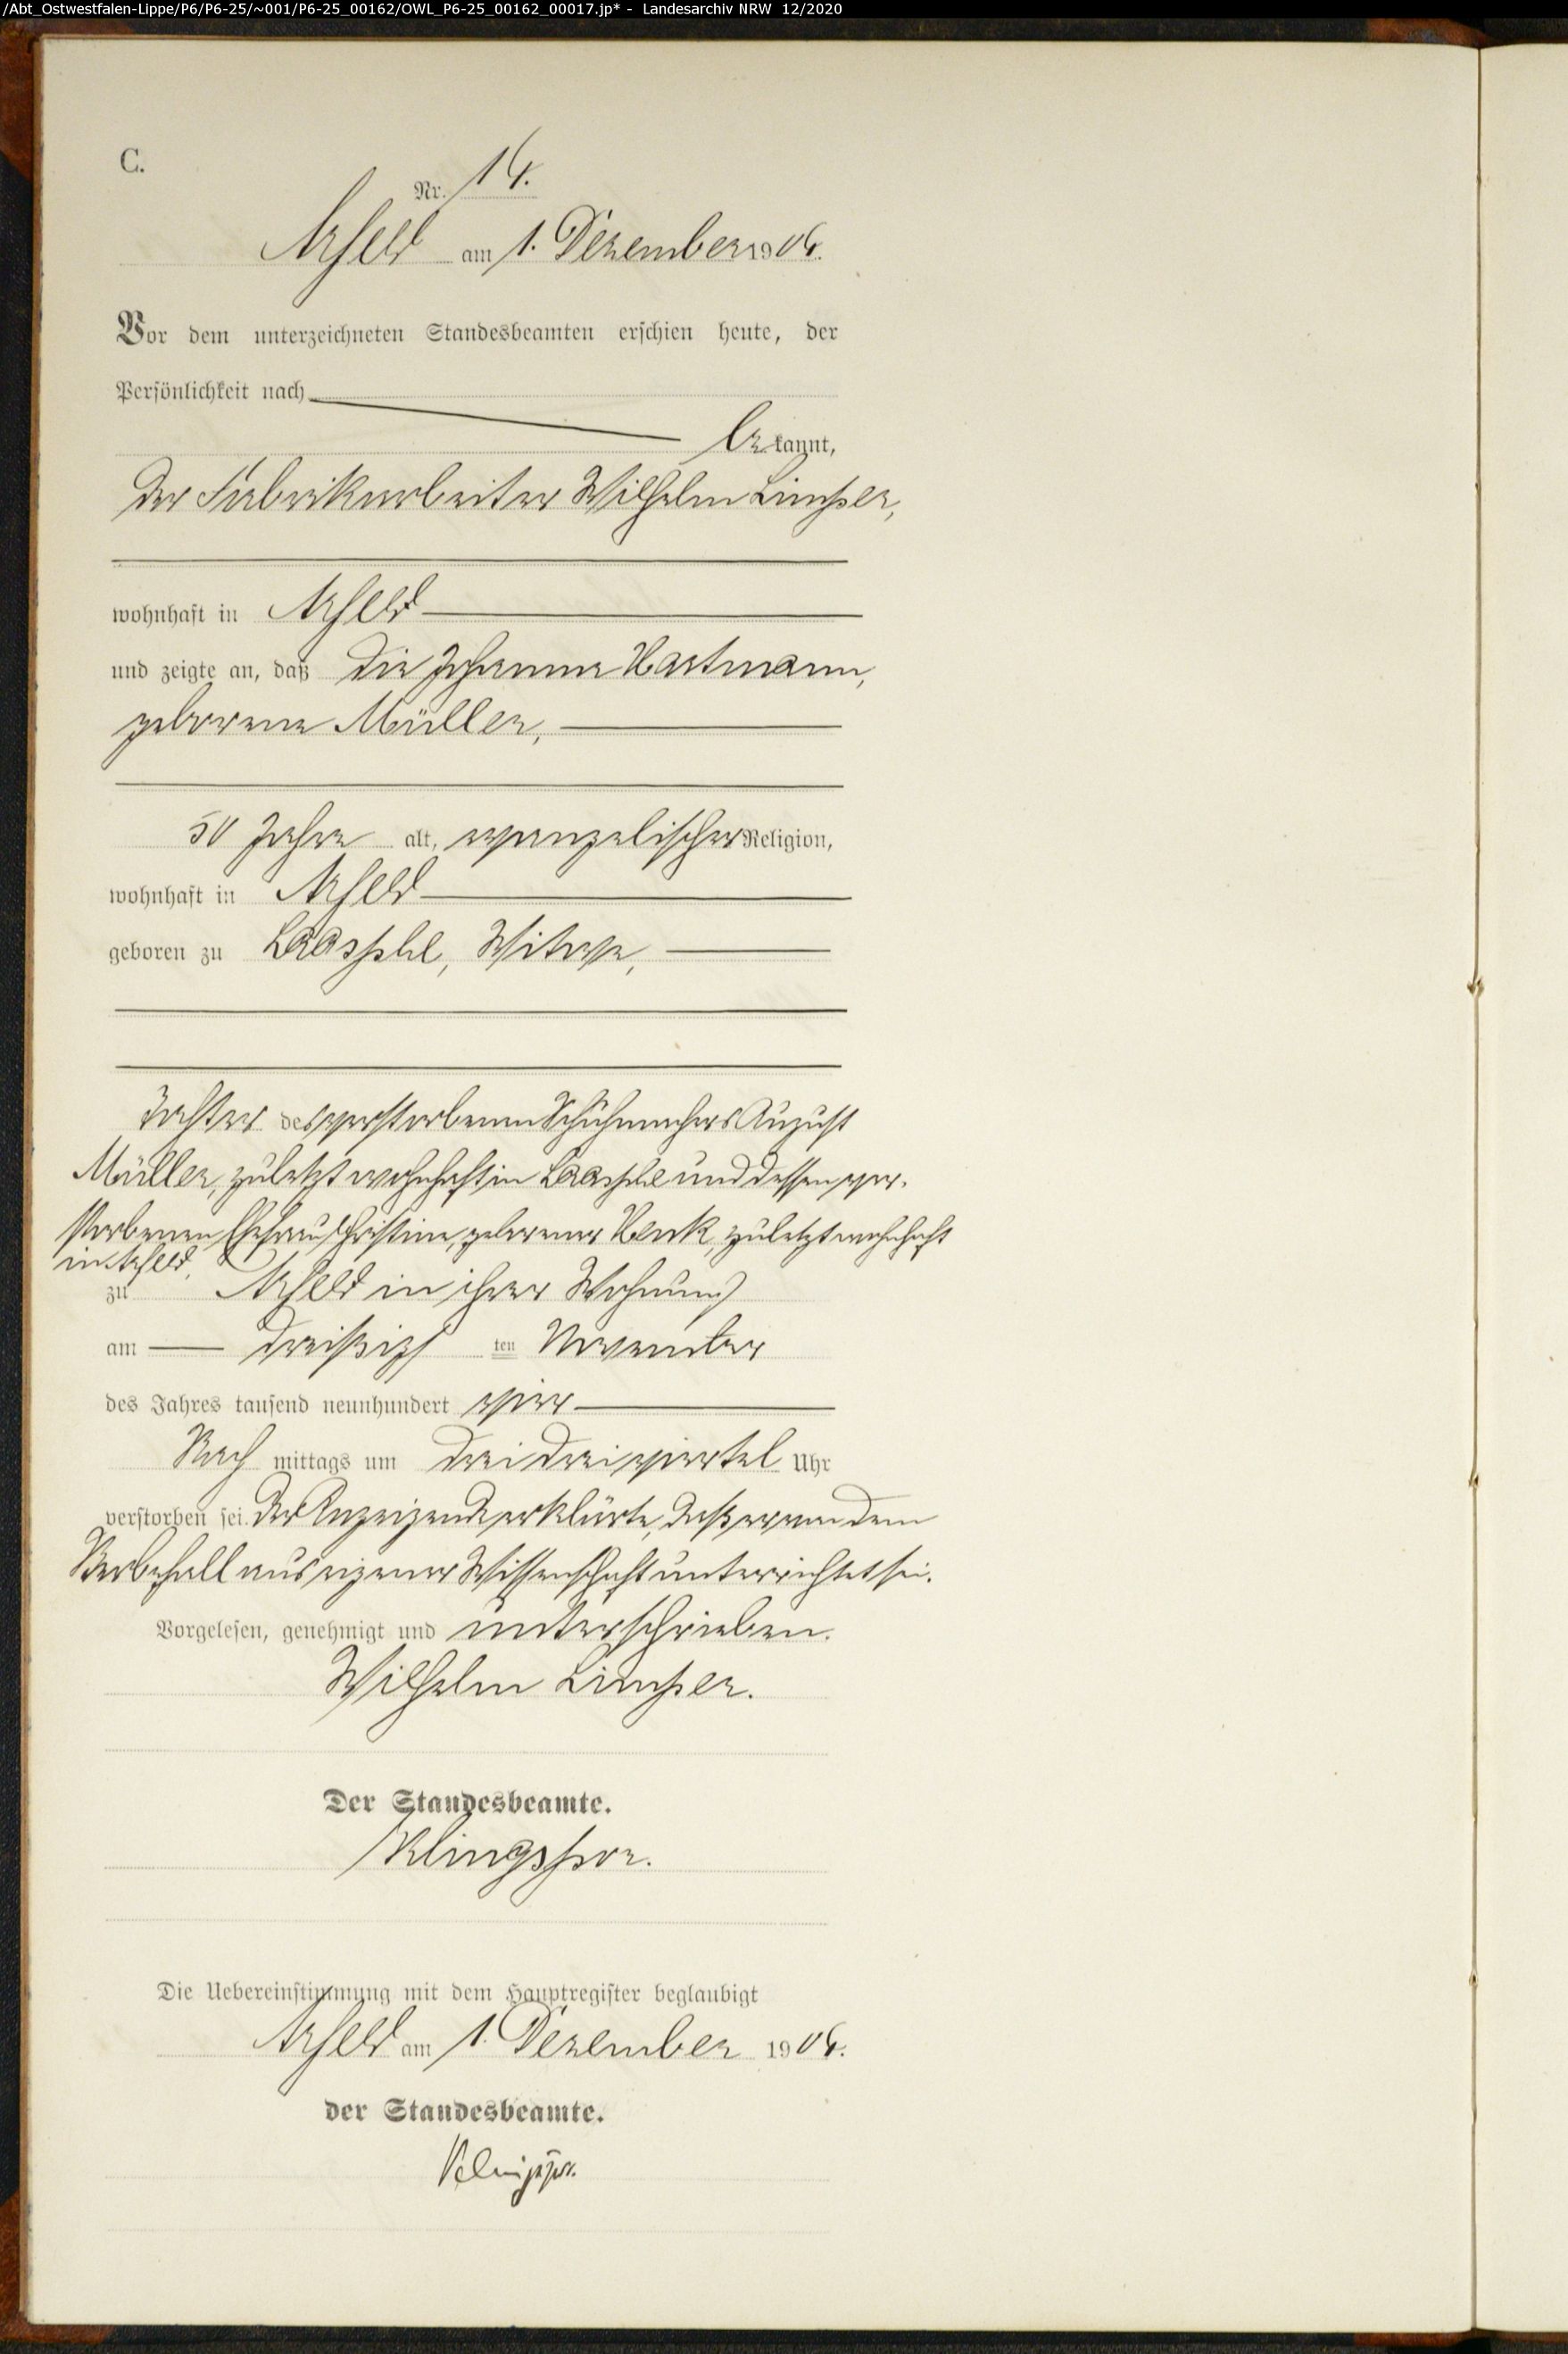 /Abt_Ostwestfalen-Lippe/P6/P6-25/~001/P6-25_00162/OWL_P6-25_00162_00017.jp* - Landesarchiv NRW 12/2020
C.
Nr. 14.
Arfeld am 1. Dezember 1904.
Vor dem unterzeichneten Standesbeamten erschien heute, der
Persönlichkeit nach
bekannt,
der Fabrikarbeiter Wilhelm Limper,
wohnhaft in Arfeld
und zeigte an, daß die Johanna Hartmann,
geborene Müller,
50 Jahre alt, evangelischer Religion,
wohnhaft in Arfeld
geboren zu Laasphe, Witwe,
Tochter des verstorbenen Schuhmachers August
Müller, zuletzt wohnhaft in Laasphe und dessen ver-
storbenen Ehefrau Christine, geborener, zuletzt wohnhaft
in Arfeld,
zu Arfeld in ihrer Wohnung
am dreißigsten November
des Jahres tausend neunhundert vier
Nachmittags um drei dreiviertel Uhr
verstorben sei. Der Anzeigende erklärte, daß er von dem
Sterbefall aus eigener Wissenschaft unterrichtet sei.
Vorgelesen, genehmigt und unterschrieben.
Wilhelm Limper.
Der Standesbeamte.
Klingspor.
Die Uebereinstimmung mit dem Hauptregister beglaubigt
Arfeld am 1. Dezember 1904.
der Standesbeamte.
Klingspor.